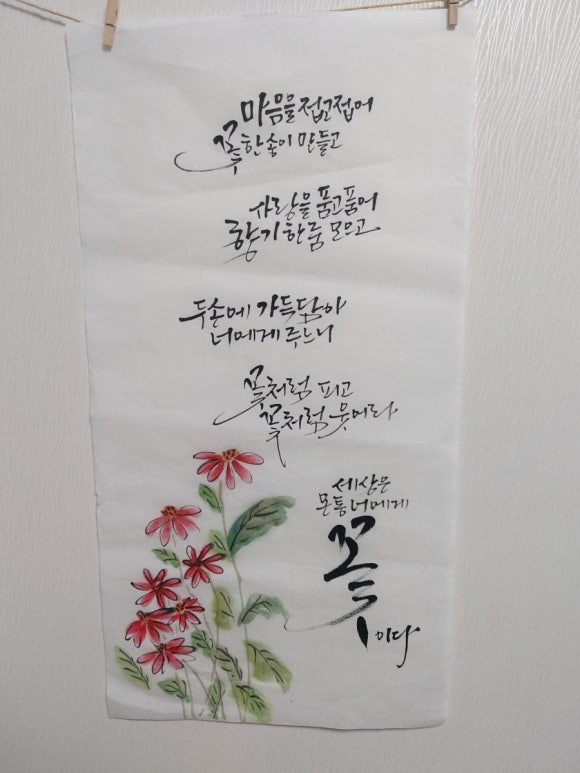 마음을 접고접어
꽃 한송이 만들고
사랑을 품고품어
향기 한줌 모으고
두손에 가득담아
너에게 주느니
꽃처럼 피고
꽃처럼 웃어라
세상은
온통 너에게
꽃
이다